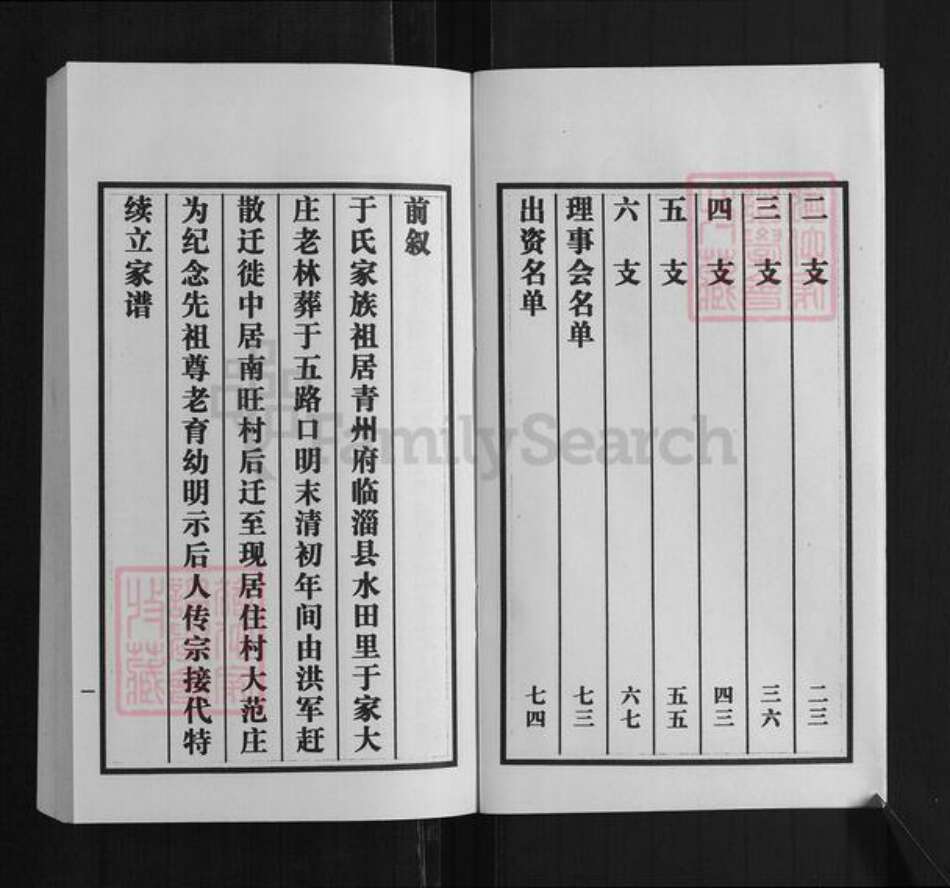 二支 二三
三支 三六
四支 四三
五支 五五
六支 六七
理事会名单 七三
出资名单 七四
前叙
于氏家族祖居青州府临淄县水田里于家大
庄老林葬于五路口明末清初年间由洪军赶
散迁徙中居南旺村后迁至现居住村大范庄
为纪念先祖尊老育幼明示后人传宗接代特
续立家谱
一
FamilySearch